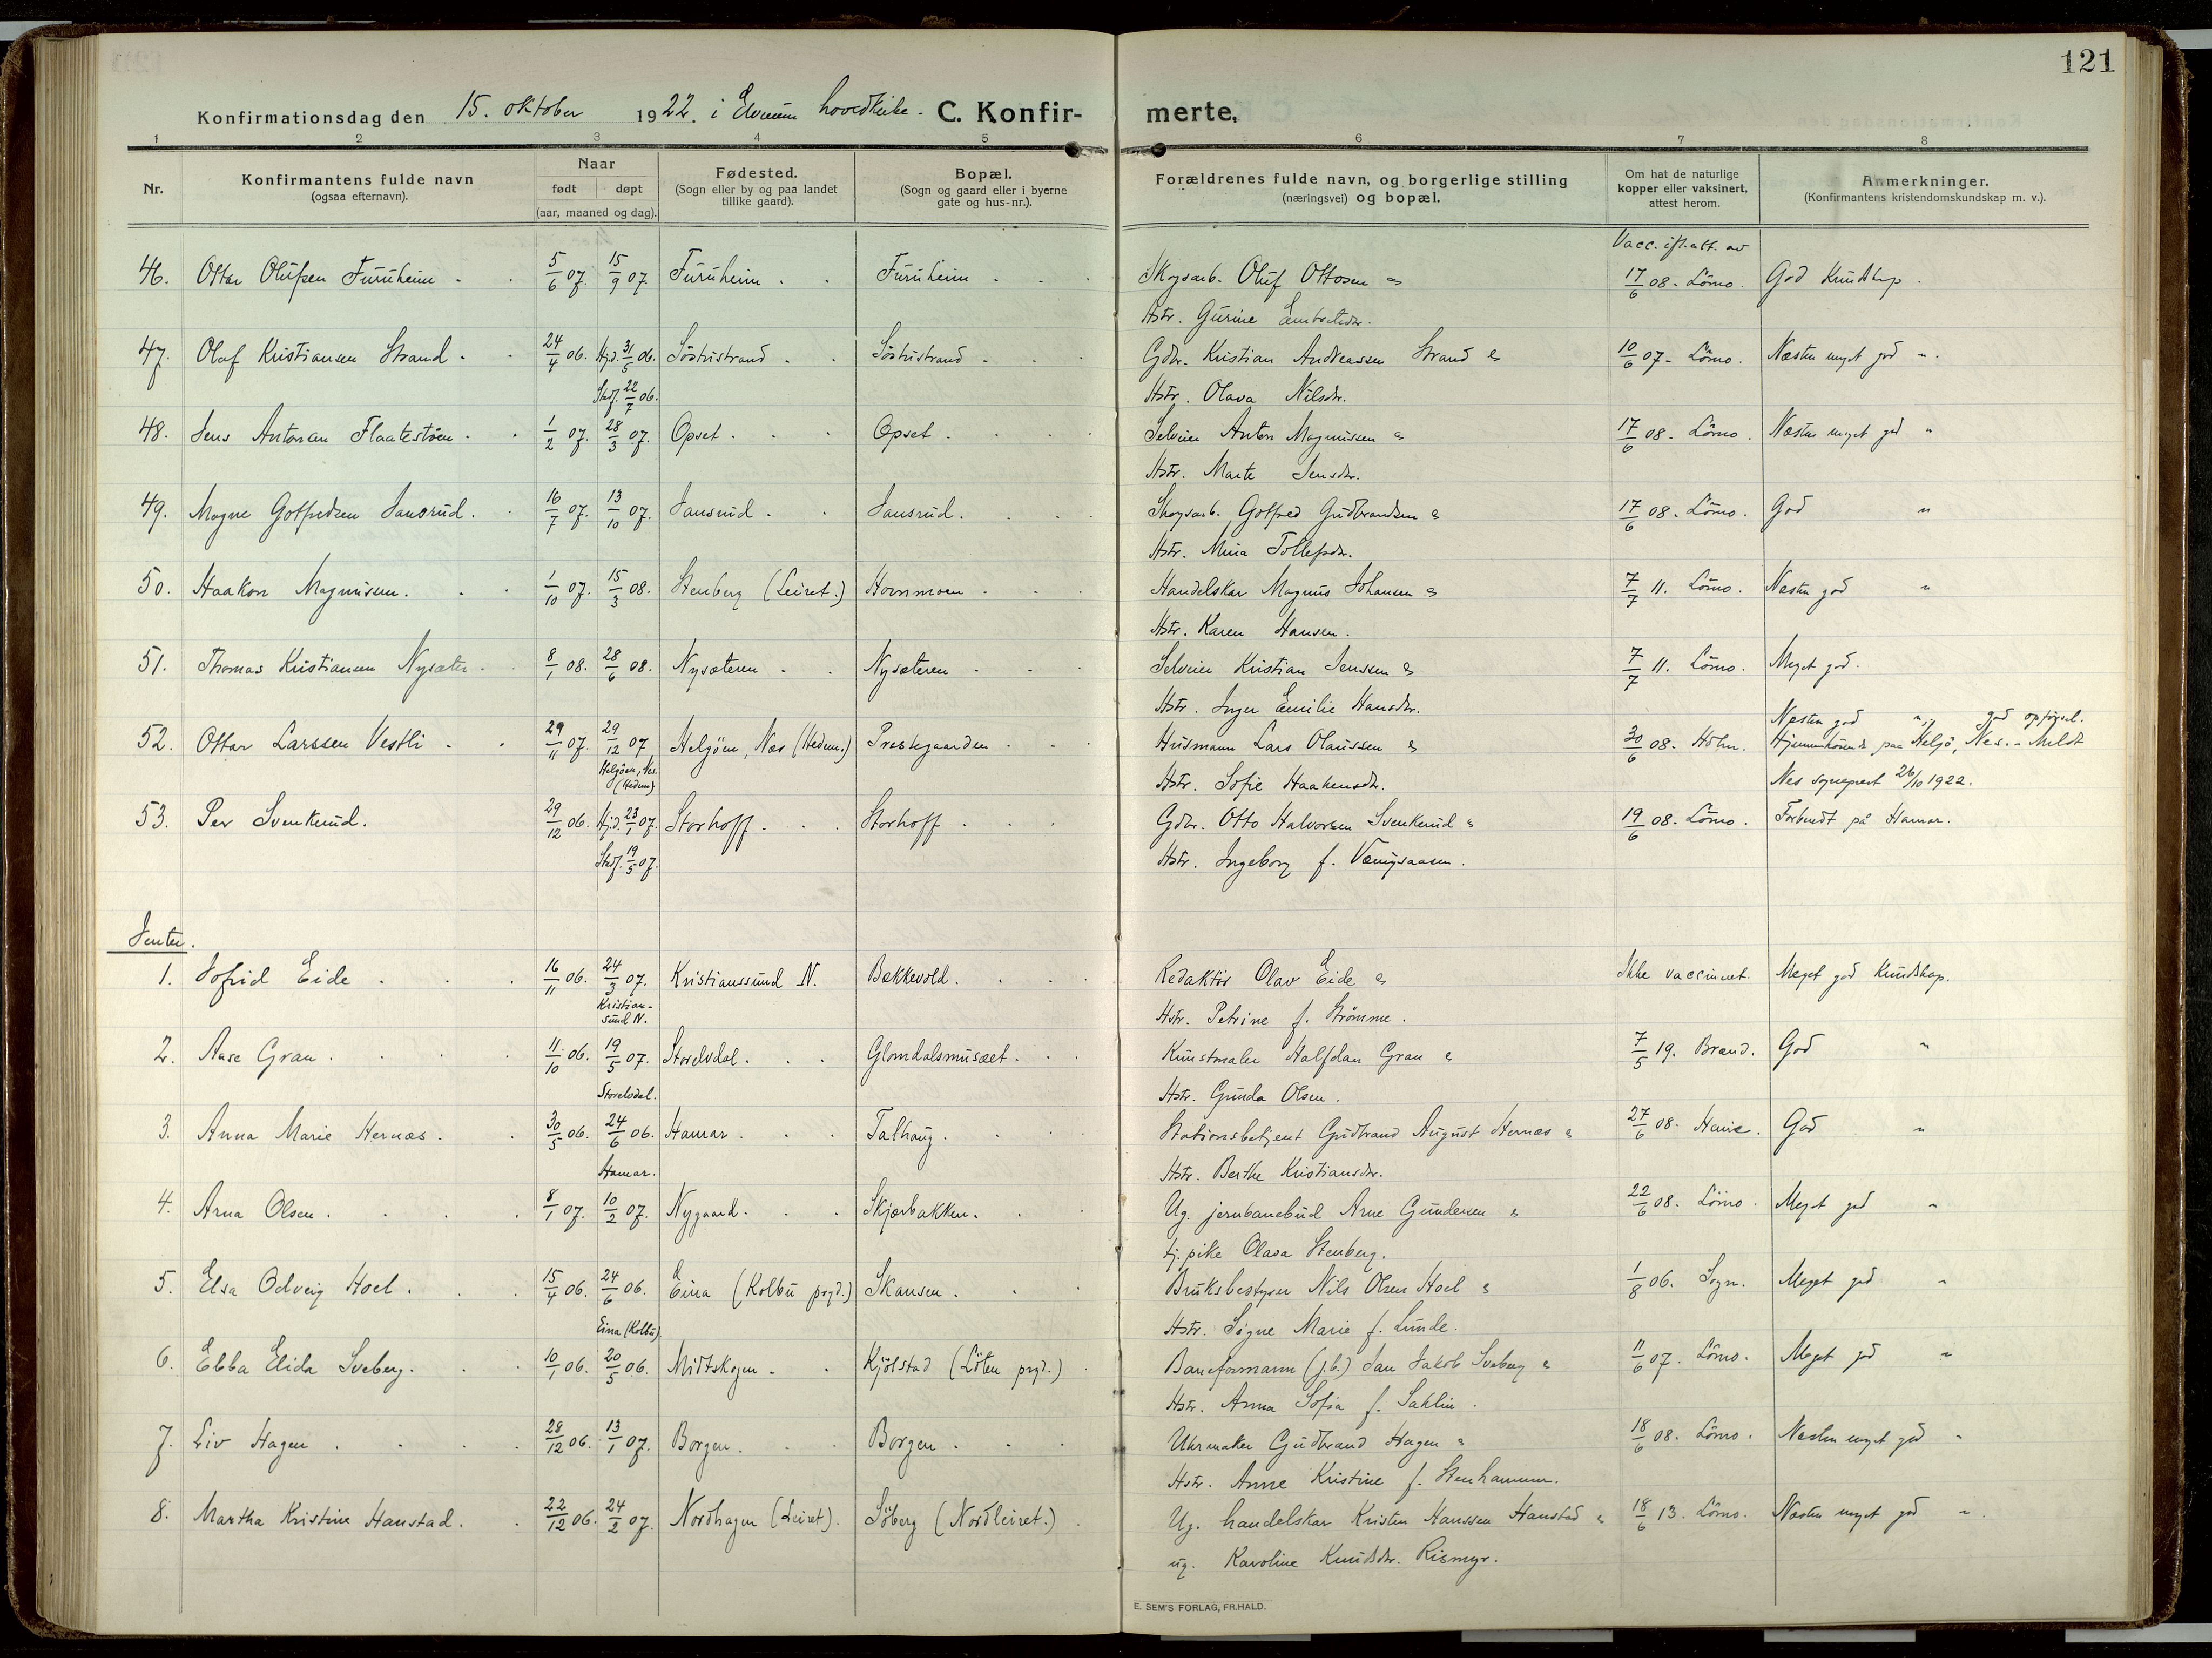 121
Konfirmationsdag den 15. oktober 1922. i Elverum hovedkirke. C. Konfirmerte.
1 2 3 4 5 6 7 8
Nr.
Konfirmantens fulde navn
(ogsaa efternavn).
Naar
født døpt
(aar, maaned og dag).
Fødested.
(Sogn eller by og paa landet
tillike gaard).
Bopæl.
(Sogn og gaard eller i byerne
gate og hus-nr.).
Forældrenes fulde navn, og borgerlige stilling
(næringsvei) og bopæl.
Om hat de naturlige
kopper eller vaksinert,
attest herom.
Anmerkninger.
(Konfirmantens kristendomskundskap m. v.).
Vacc. ifl. att. av
46. Ottar Olufsen Furuheim 5/6 07. 15/9 07. Furuheim Furuheim Skogsarb. Oluf Ottosen & 17/6 08. Lömo. God Kundskap.
Hstr. Gurine Embretsdr.
47. Olaf Kristiansen Strand 24/4 06. Hjd. 31/5 06. Söstustrand Söstustrand Gdbr. Kristian Andreassen Strand & 10/6 07. Lömo. Næsten meget god "
Stadf. 22/7 06. Hstr. Olava Nilsdr.
48. Jens Antonsen Flaatestöen 1/2 07. 28/3 07. Opset Opset Selveier Anton Magnussen & 17/6 08. Lömo. Næsten meget god "
Hstr. Marte Jensdr.
49. Magne Gotfredsen Jansrud. 16/7 07. 13/10 07. Jansrud Jansrud. Skogsarb. Gotfred Gudbrandsen & 17/6 08. Lömo. God "
Hstr. Mina Tollefsdr.
50. Haakon Magnussen. 1/10 07. 15/3 08. Stenberg (Leiret.) Hornmoen Handelskar Magnus Johansen & 7/7 11. Lömo. Næsten god "
Hstr. Karen Hansen.
51. Thomas Kristiansen Nysæter 8/1 08. 28/6 08. Nysæteren Nysæteren Selveier Kristian Jenssen & 7/7 11. Lömo. Meget god.
Hstr. Inger Emilie Hansdr.
52. Ottar Larssen Vestli 29/11 07. 29/12 07 Helgöen, Nes (Hedem.) Prestegaarden Husmann Lars Olaussen & 30/6 08. Holm. Næsten god ", god opförsel.
Helgöen, Nes. (Hedem) Hjemmehörende paa Helgö, Nes. - Meldt
Hstr. Sofie Haakensdr. Nes sogneprest 26/10 1922.
53. Per Svenkerud. 29/12 06. Hjd. 23/1 07. Storhoff Storhoff Gdbr. Otto Halvorsen Svenkerud & 19/6 08. Lömo. Forberedt på Hamar.
Stadf. 19/5 07. Hstr. Ingeborg f. Vængsaasen.
Jenter.
1. Jofrid Eide 16/11 06. 24/3 07. Kristianssund N. Bækkevold. Redaktör Olav Eide & Ikke vaccineret. Meget god Kundskap.
Kristiansund N. Hstr. Petrine f. Strömme.
2. Aase Gran 11/10 06. 19/5 07. Storelvdal. Glomdalsmusæet. Kunstmaler Halfdan Gran & 7/5 19. Brænd. God "
Storelvdal. Hstr. Gunda Olsen.
3. Anna Marie Hernæs. 30/5 06. 24/6 06. Hamar. Talhaug. Stationsbetjent Gudbrand August Hernæs & 27/6 08. God "
Hamar. Hstr. Berthe Kristiansdr.
4. Arna Olsen. 8/1 07. 10/2 07. Nygaard. Skjærbakken. Ug. jernbanebud Arne Gundersen & 22/6 08. Lömo. Meget god "
tj. pike Olava Stenberg.
5. Elsa Odveig Hoel. 15/4 06. 24/6 06. Eina (Kolbu prgd.) Skansen. Bruksbestyrer Nils Olsen Hoel & 1/8 06. Sogn. Meget god "
Eina (Kolbu) Hstr. Signe Marie f. Lunde.
6. Ebba Elida Sveberg. 10/1 06. 20/5 06. Midtskogen Kjölstad (Löten prgd.) Baneformann (j.b.) Jan Jakob Sveberg & 11/6 07. Lömo. Meget god "
Hstr. Anna Sofia f. Sahlin.
7. Liv Hagen 28/12 06. 13/1 07. Borgen. Borgen. Uhrmaker Gudbrand Hagen & 18/6 08. Lömo. Næsten meget god "
Hstr. Anne Kristine f. Stenhammer.
8. Martha Kristine Hanstad. 22/12 06. 24/2 07. Nordhagen (Leiret). Söberg (Nordleiret.) Ug. handelskar Kristen Hanssen Hanstad & 18/6 13. Lömo. Næsten meget god "
ug. Karoline Knudsdr. Rismyr.
E. SEM'S FORLAG, FR.HALD.